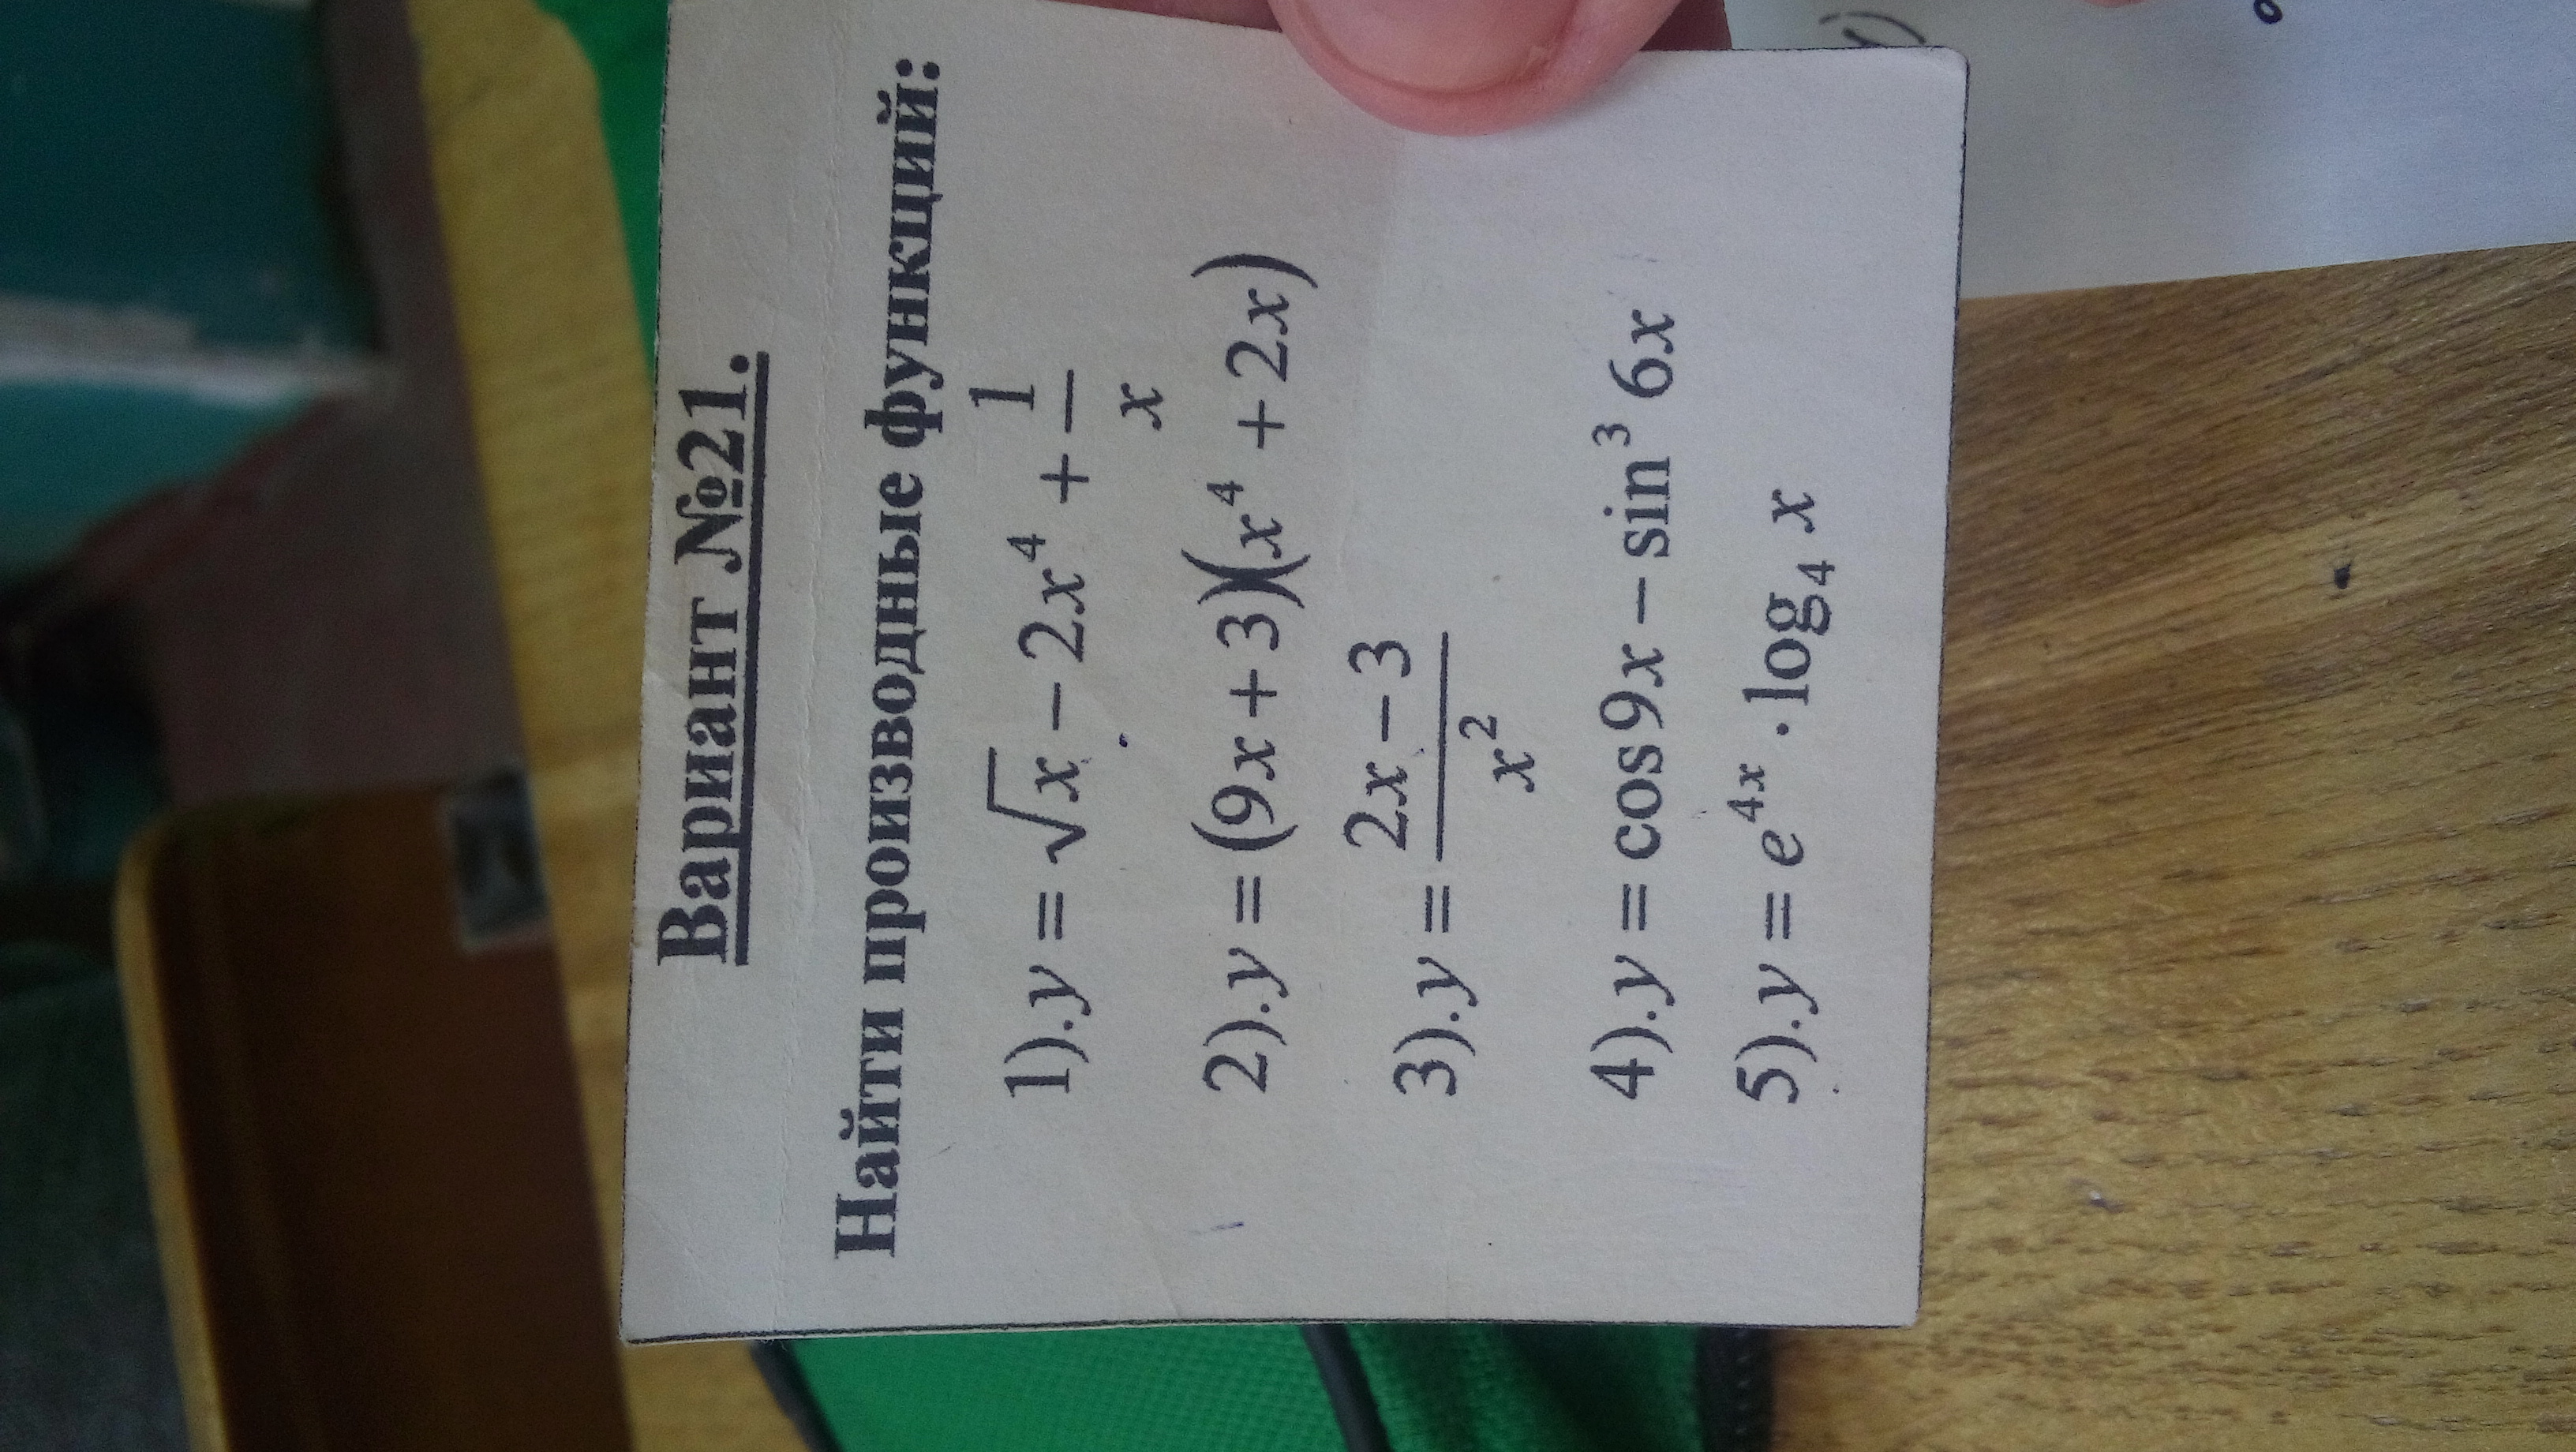 Вариант №21.
Найти производные функций:
1).y = √x − 2x⁴ + 1/x
2).y = (9x + 3)(x⁴ + 2x)
3).y = (2x − 3)/x²
4).y = cos 9x − sin³ 6x
5).y = e⁴ˣ · log₄ x